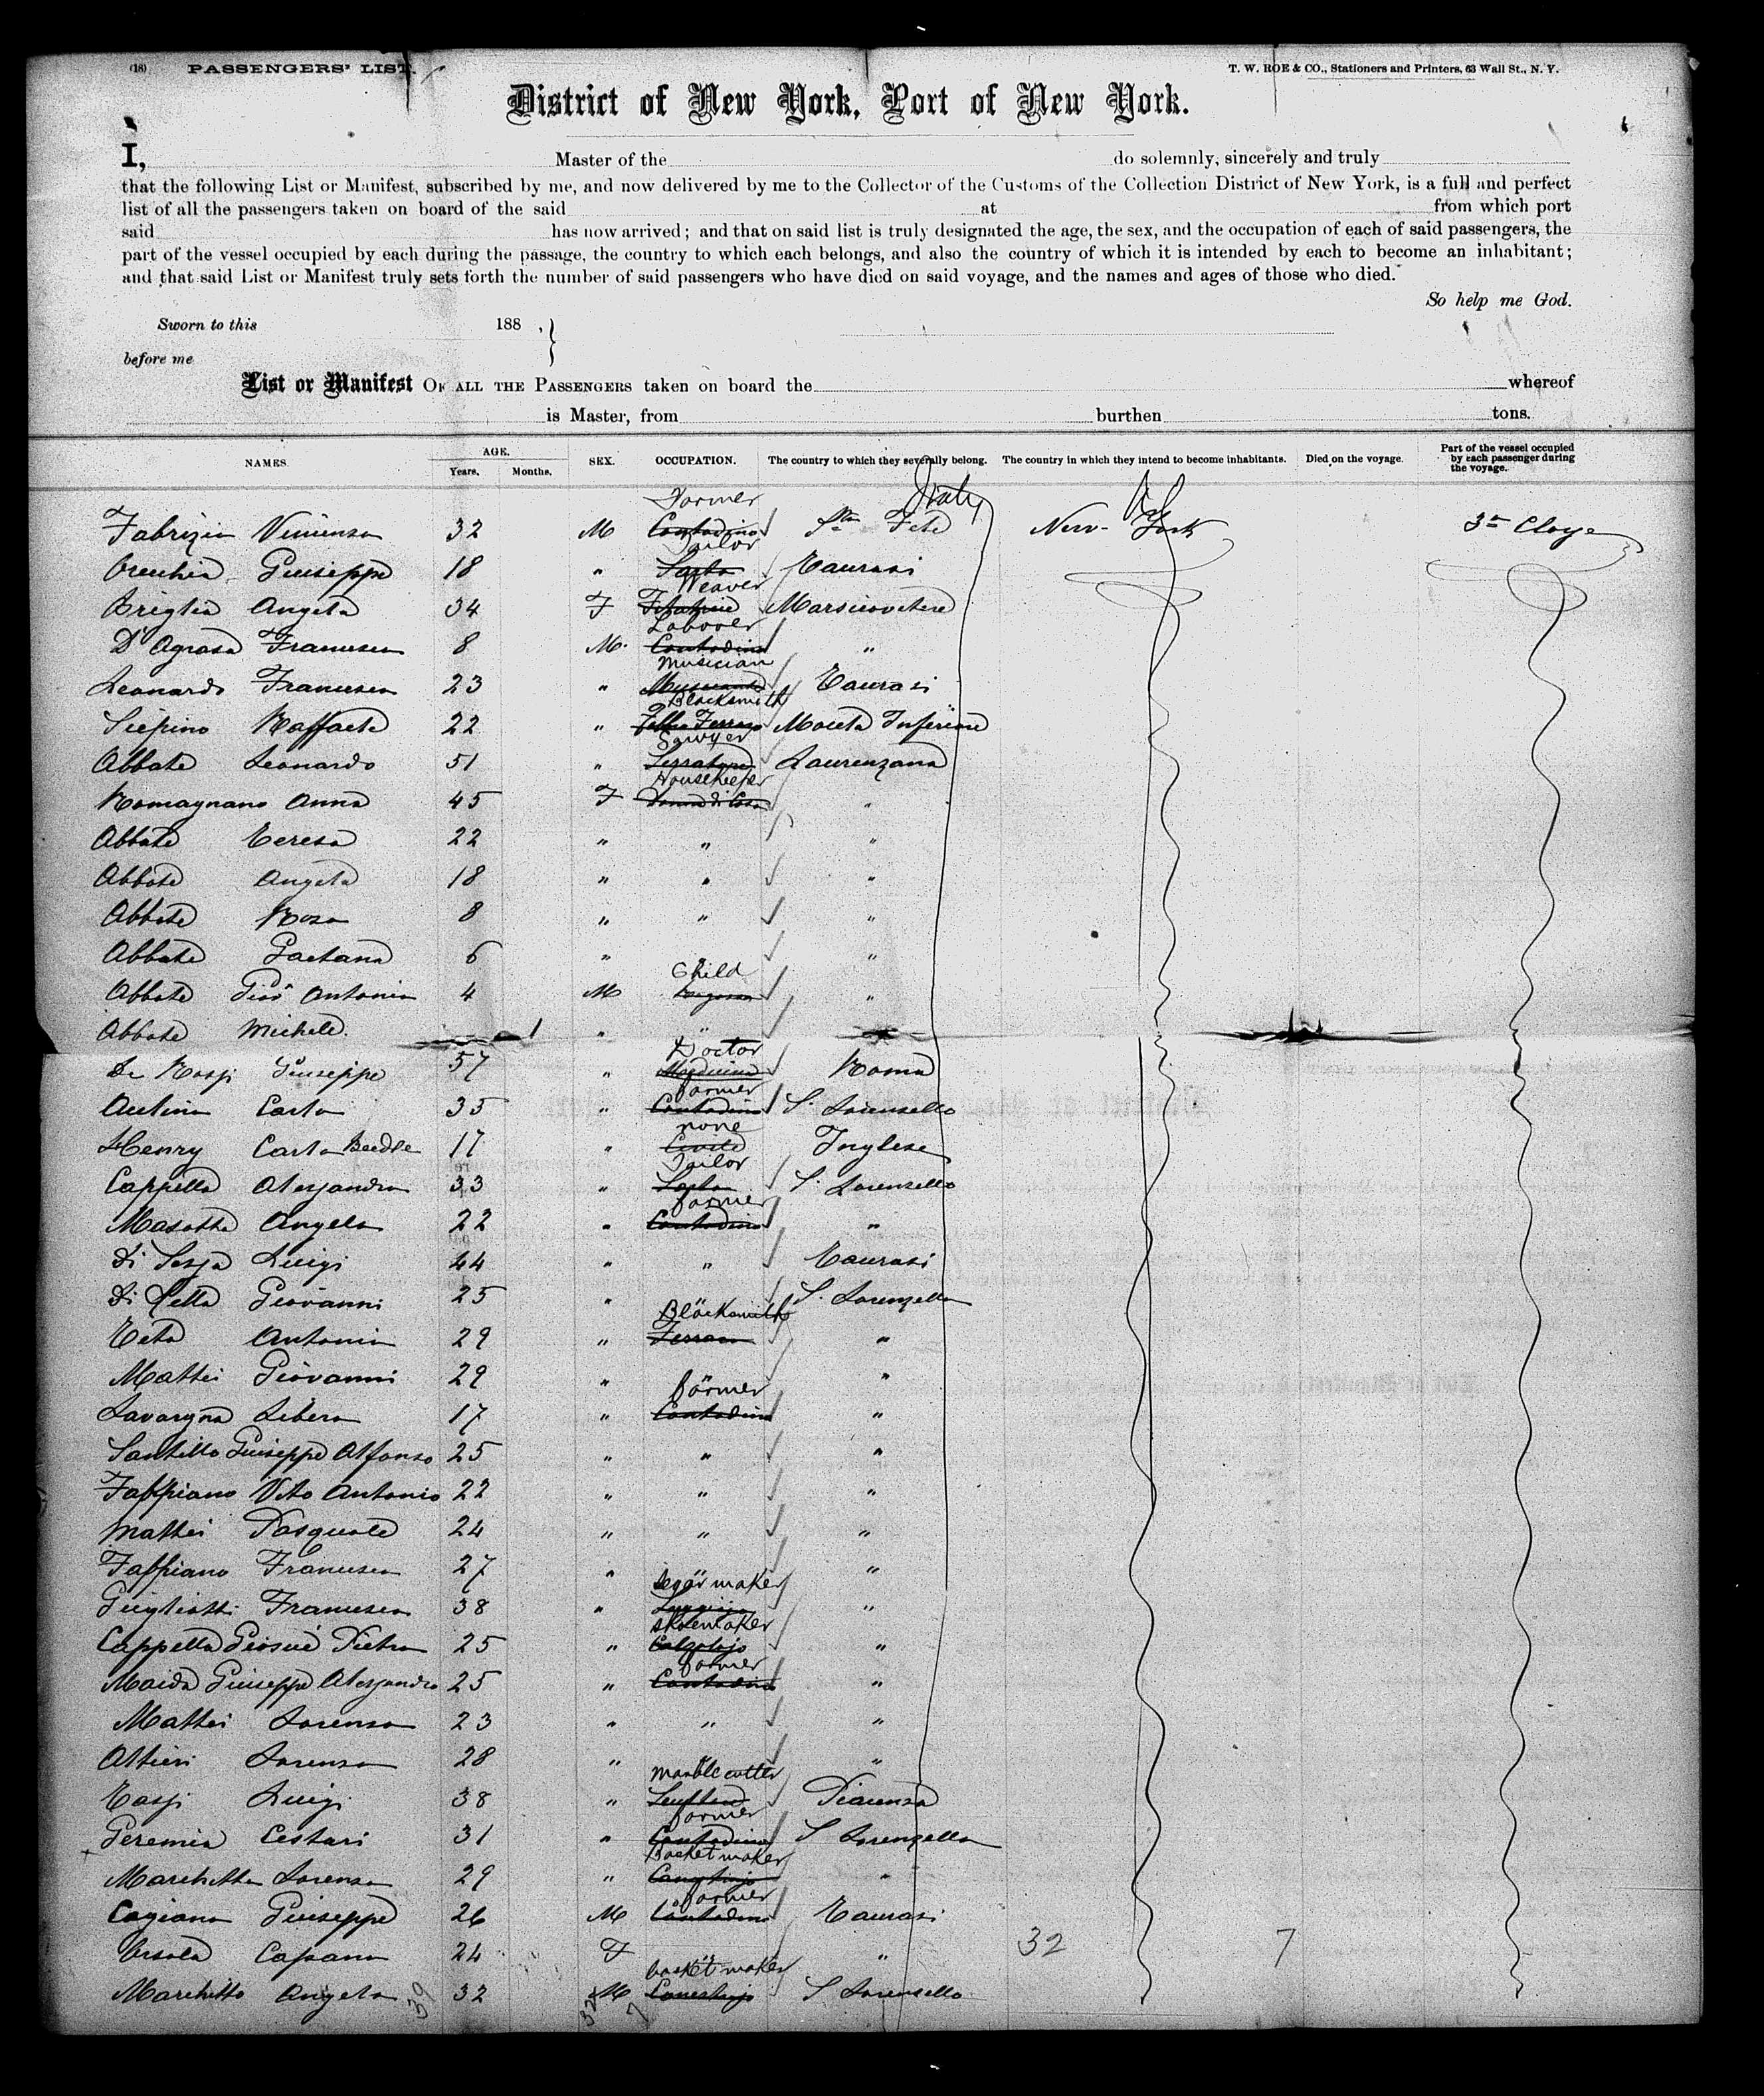 (18) PASSENGERS' LIST. T. W. ROE & CO., Stationers and Printers, 63 Wall St., N. Y.
District of New York, Port of New York.
I, Master of the do solemnly, sincerely and truly
that the following List or Manifest, subscribed by me, and now delivered by me to the Collector of the Customs of the Collection District of New York, is a full and perfect
list of all the passengers taken on board of the said at from which port
said has now arrived; and that on said list is truly designated the age, the sex, and the occupation of each of said passengers, the
part of the vessel occupied by each during the passage, the country to which each belongs, and also the country of which it is intended by each to become an inhabitant;
and that said List or Manifest truly sets forth the number of said passengers who have died on said voyage, and the names and ages of those who died.
So help me God.
Sworn to this 188 ,
before me
List or Manifest OF ALL THE PASSENGERS taken on board the whereof
is Master, from burthen tons.
NAMES. AGE. Years. Months. SEX. OCCUPATION. The country to which they severally belong. The country in which they intend to become inhabitants. Died on the voyage. Part of the vessel occupied by each passenger during the voyage.
Farmer Italy
Fabrizio 32 M Contadino New-York 3a
Tailor
Giuseppe 18 " Sarto Taurasi
Weaver
Briglia Angela 34 F Marsicovetere
Laborer
D'Agrosa Francesco 8 M. Contadino "
Musician
Leonardo Francesco 23 " Musicante Taurasi
Blacksmith
Raffaele 22 " Ferraro Inferiore
Sawyer
Abbate Leonardo 51 " Serratore Laurenzana
Housekeeper
Romagnano Anna 45 F Donna di Casa "
Abbate Teresa 22 " " "
Abbate Angela 18 " " "
Abbate Rosa 8 " " "
Abbate Gaetana 6 " " "
Child
Abbate Gios Antonio 4 M "
Abbate Michele. 1 " "
Doctor
De Rossi Giuseppe 57 " Roma
Farmer
Carlo 35 " Contadino S. Lorenzello
none
Henry Carlo Beedle 17 " Civile Inglese
Tailor
Cappella Alessandro 33 " Sarto S. Lorenzello
farmer
Masotta Angelo 22 " Contadino "
Luigi 44 " " Taurasi
Di Lella Giovanni 25 " " S. Lorenzello
Blacksmith
Antonio 29 " Ferraro "
Mattei Giovanni 29 " " "
farmer
Lavorgna Libero 17 " Contadino "
Santillo Giuseppe Alfonso 25 " " "
Fappiano Vito Antonio 22 " " "
Mattei Pasquale 24 " " "
Fappiano Francesco 27 " " "
segar maker
Francesco 38 " "
shoemaker
Cappella Giosué Pietro 25 " Calzolajo "
farmer
Maida Giuseppe Alessandro 25 " Contadino "
Mattei Lorenzo 23 " " "
Altieri Lorenzo 28 " " "
marble cutter
Luigi 38 " Piacenza
farmer
Geremia Cestari 31 " Contadino S Lorenzello
Basket maker
Marchitto Lorenzo 29 " "
farmer
Cogiano Giuseppe 26 M Contadino Taurasi
Capano 24 F " " 32 7
basket maker
Marchitto Angelo 32 M Canestrajo S Lorenzello
39 32 7